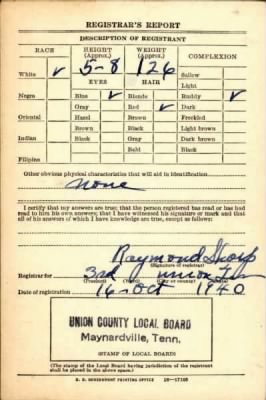 REGISTRAR'S REPORT
DESCRIPTION OF REGISTRANT
RACE HEIGHT (Approx.) WEIGHT (Approx.) COMPLEXION
White ✓ 5-8 126 Sallow
EYES HAIR Light
Negro Blue ✓ Blonde Ruddy ✓
Gray Red ✓ Dark
Oriental Hazel Brown Freckled
Brown Black Light brown
Indian Black Gray Dark brown
Bald Black
Filipino
Other obvious physical characteristics that will aid in identification
None
I certify that my answers are true; that the person registered has read or has had
read to him his own answers; that I have witnessed his signature or mark and that
all of his answers of which I have knowledge are true, except as follows:
Raymond Sharp
(Signature of registrar)
Registrar for 3rd Union Tenn
(Precinct) (City or county) (State)
Date of registration 16-Oct 1940
UNION COUNTY LOCAL BOARD
Maynardville, Tenn.
(STAMP OF LOCAL BOARD)
(The stamp of the Local Board having jurisdiction of the registrant
shall be placed in the above space.)
U. S. GOVERNMENT PRINTING OFFICE 16-17105